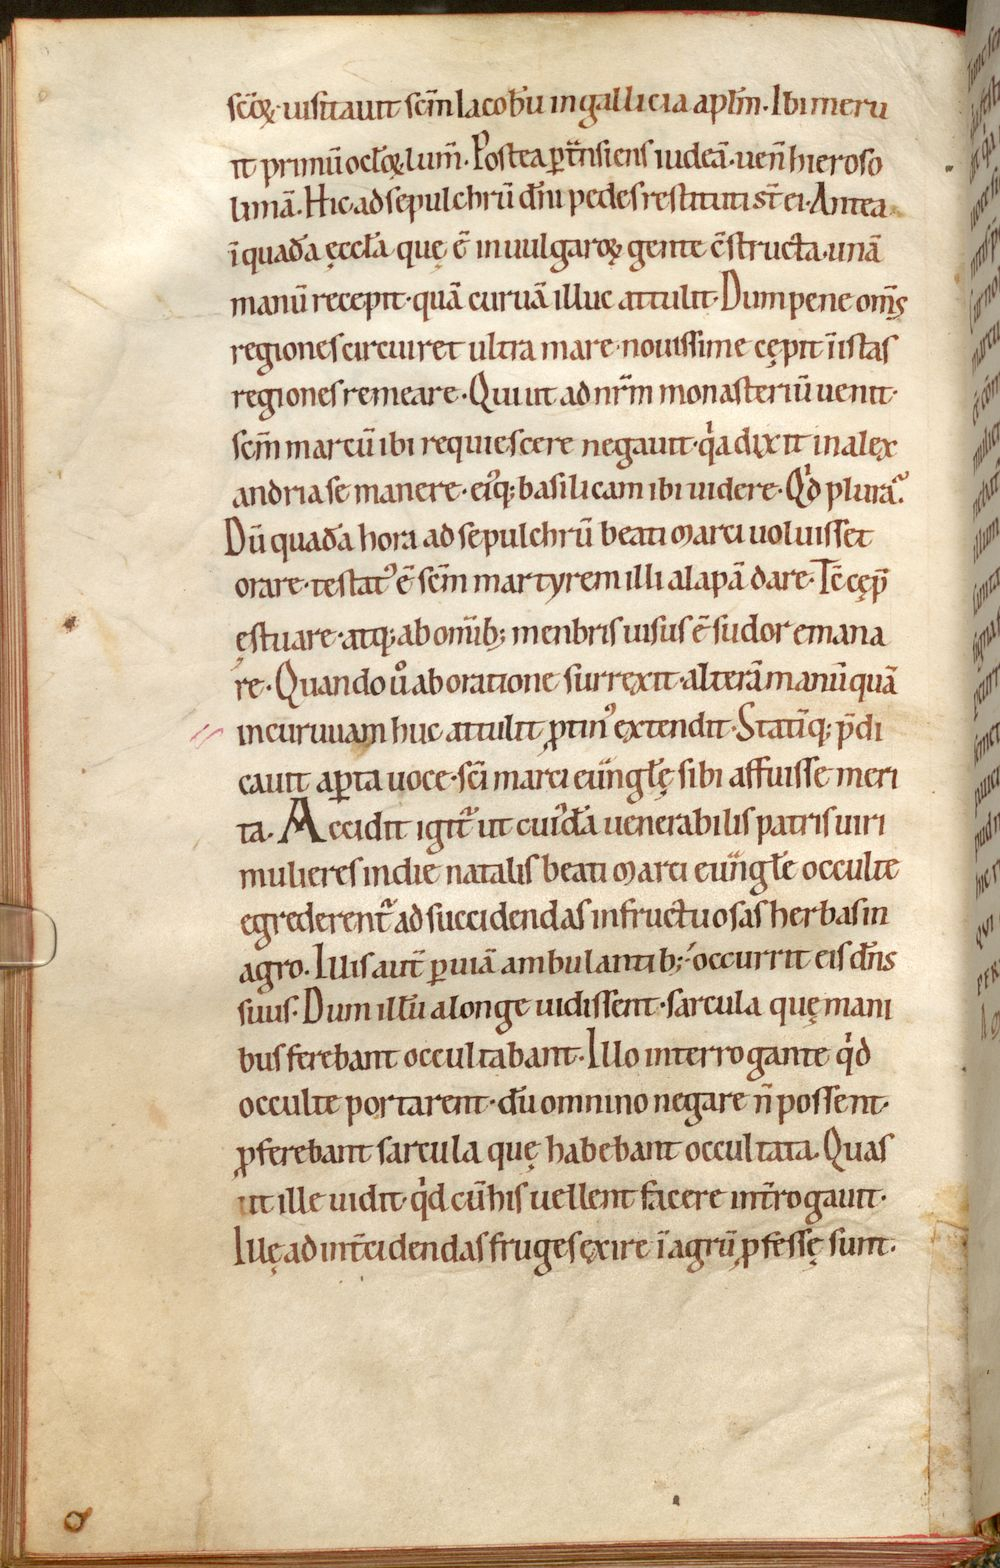 sc̄oꝝ· uisitauit sc̄m Iacob̄u in gallicia apl̄m· Ibi meru
it primū ocl̄oꝝ lum̄· Postea ꝑt̄nsiens iudeā· uen̄ hieroso
limā· Hic ad sepulchrū dn̄i pedes restituti st̄ ei· Antea
ī quad̄a ęccl̄a quę ē in uulgaroꝝ gente c̄structa· unā
manū recepit· quā curuā illuc attulit· Dum pene om̄s
regiones circuiret ultra mare· nouissime cępit ī istas
regiones remeare· Qui ut ad nr̄m monasteriū uenit·
sc̄m marcū ibi requiescere negauit· qͥa dixit in alex
andria se manere· eiꝰq; basilicam ibi uidere· Qͥd plura?
Dū quad̄a hora ad sepulchrū beati Marci uoluisset
orare· testatꝰ ē sc̄m martyrem illi alapā dare· Tc̄ cęp̄
ęstuare· atq; ab om̄ib; menbris uisus ē sudor emana
re· Quando ůo ab oratione surrexit· alterā manū quā
incuruuam huc attulit ꝓtinꝰ extendit· Statīq; p̄di
cauit aꝑta uoce· sc̄i marci eūngl̄ę sibi affuisse meri
ta. Accidit igit᷑ ut cuiꝰd̄a uenerabilis patris uiri
mulieres in die natalis beati Marci eūngl̄e occulte
egrederent᷑ ad succidendas infructuosas herbas in
agro. Illis aut̄ ꝑ uiā ambulantib; occurrit eis dn̄s
suus· Dum illū a longe uidissent· sarcula quę mani
bus ferebant occultabant· Illo interrogante qͥd
occulte portarent· dū omnino negare n̄ possent·
ꝓferebant sarcula quę habebant occultata. Quas
ut ille uidit· qͥd cū his uellent facere int̄rogauit·
Illę ad int̄cidendas fruges exire ī agrū ꝓfessę sunt·